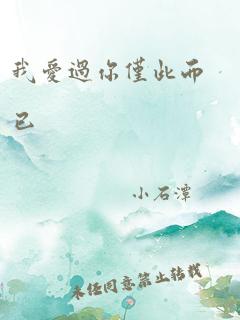 我愛過你僅此而
已
小石潭
未经同意禁止转载